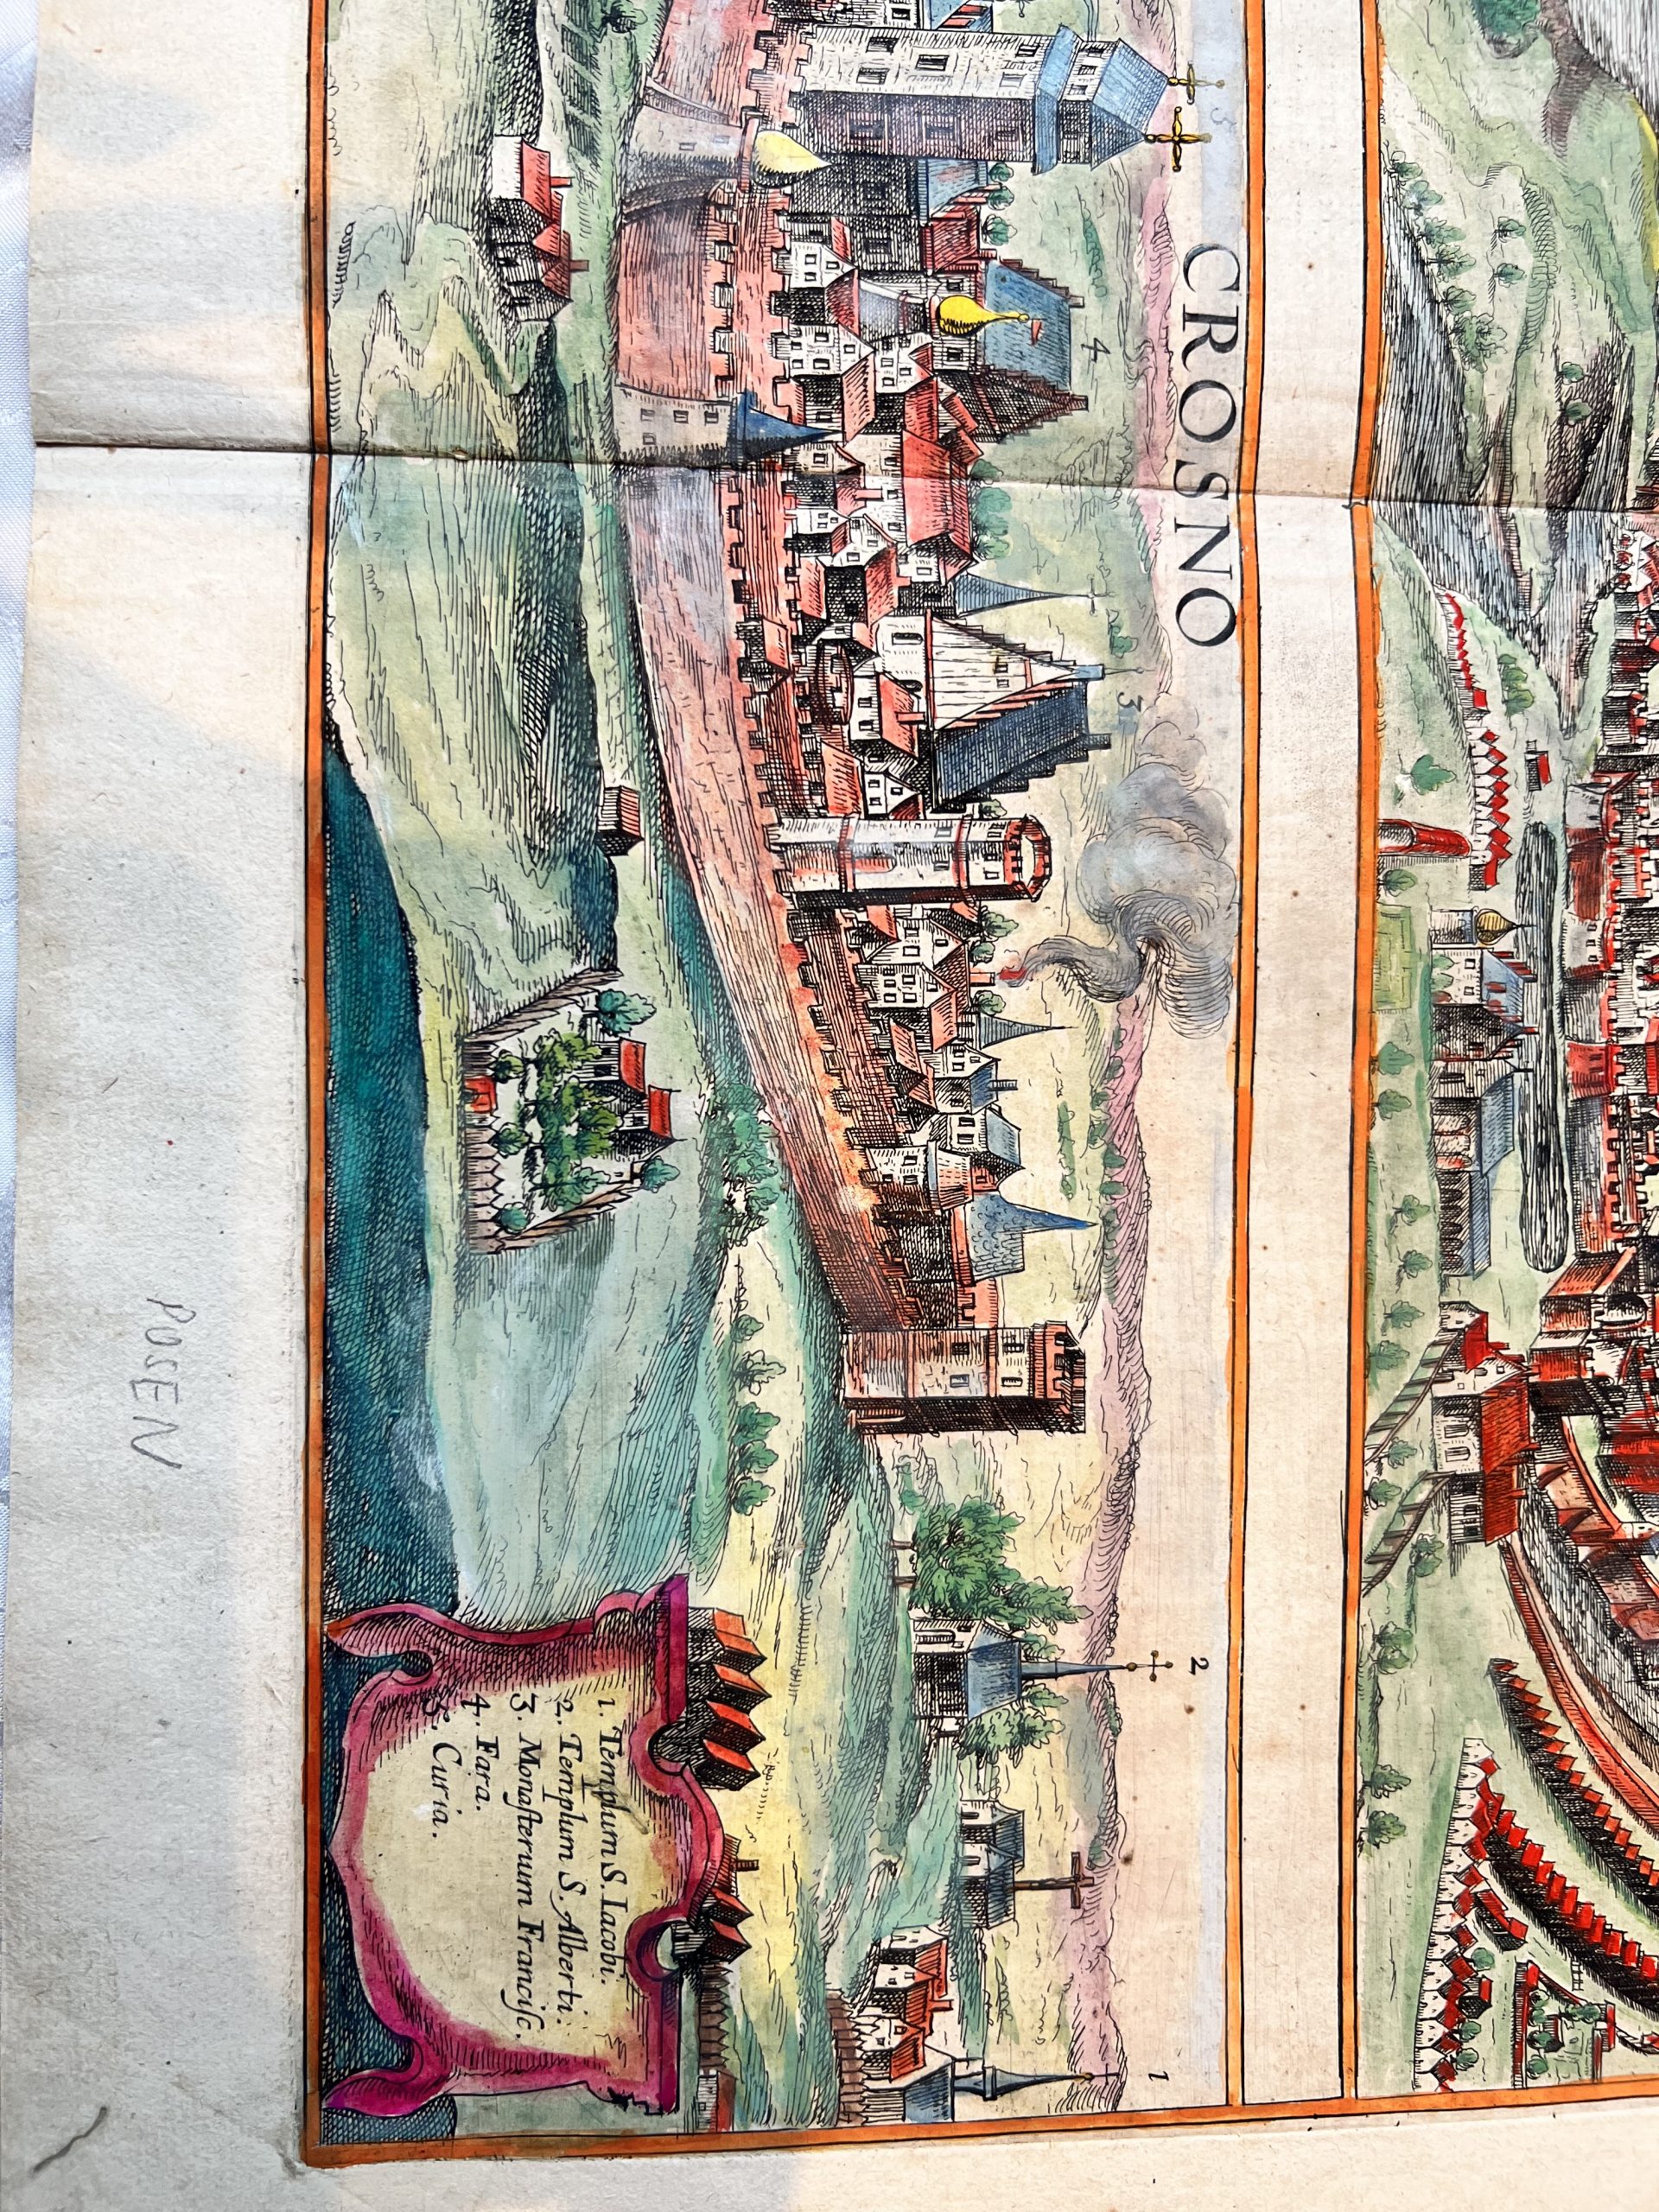 CROSNO
5
4
3
2
1
1. Templum S. Iacobi.
2. Templum S. Alberti.
3. Monasterium Francisc.
4. Fara.
5. Curia.
POSEN